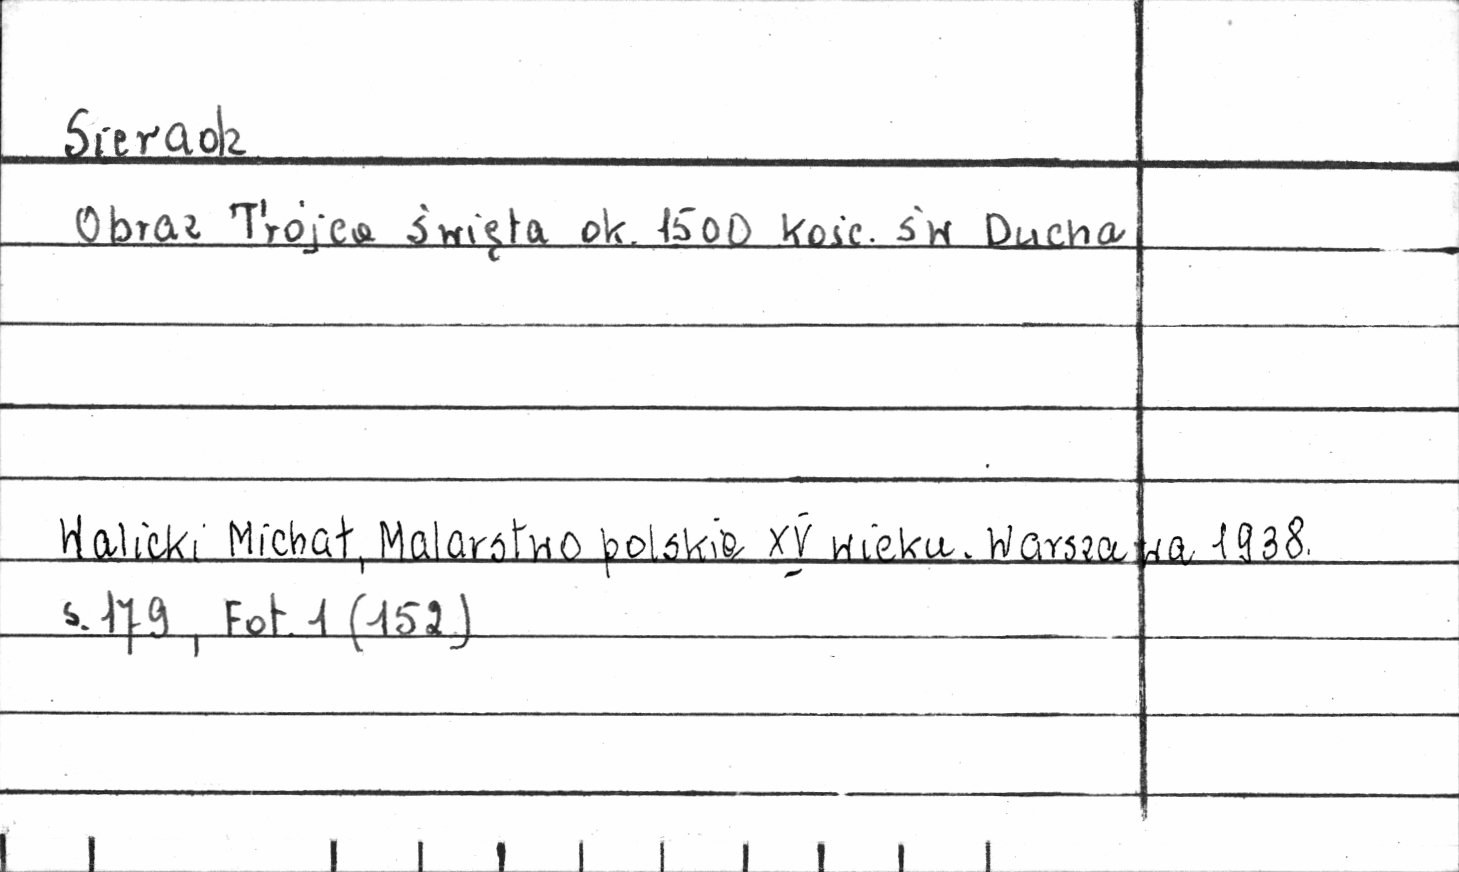 Sieradz
Obraz Trójca święta ok. 1500 kośc. św Ducha
Walicki Michał, Malarstwo polskie XV wieku. Warszawa 1938.
s. 179, Fot. 1 (152)